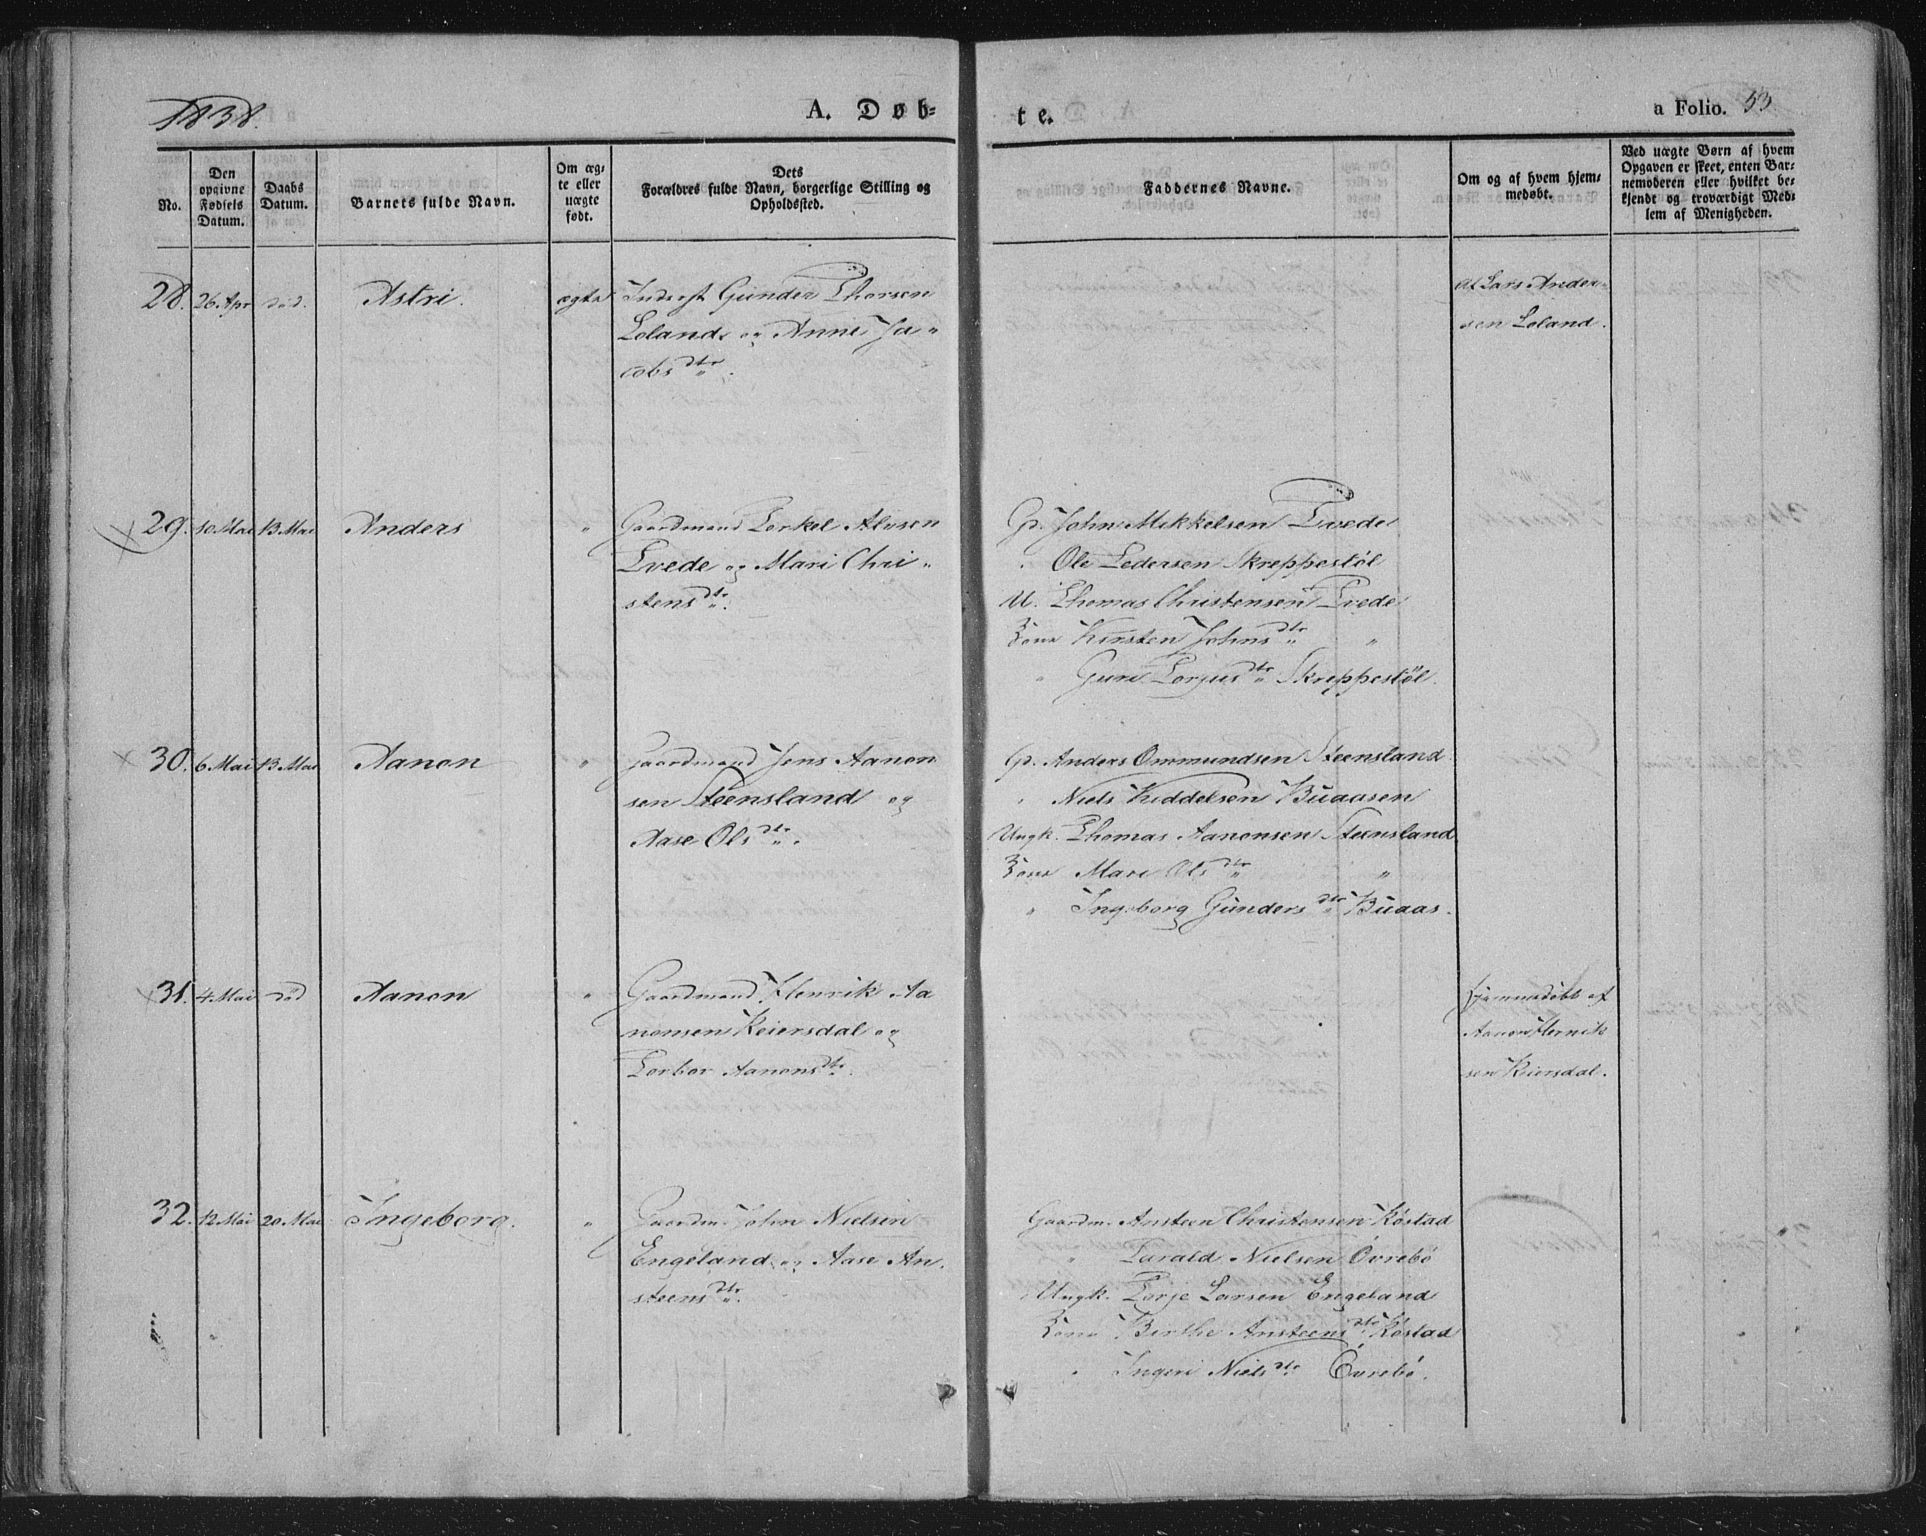 1838.
A. Døb-
te.
a Folio. 53
No.
Den opgivne Fødsels Datum.
Daabs Datum.
Barnets fulde Navn.
Om ægte eller uægte født.
Dets Forældres fulde Navn, borgerlige Stilling og Opholdssted.
Faddernes Navne.
Om og af hvem hjemmedøbt.
Ved uægte Børn af hvem Opgaven er skeet, enten Barnemoderen eller hvilket bekjendt og troværdigt Medlem af Menigheden.
28. 26. Apr død. Astri. ægte Inderst Gunder Thorsen
Lolands og Anne Ja-
cobsdtr.
Af Lars Ander-
sen Loland.
29. 10. Mai 13 Mai Anders " Gaardmand Torkel Alvsen
Tvede og Mari Chri-
stensdtr.
Gd. John Mikkelsen Tvede
Ole Pedersen Skreppestøl
U. Thomas Christensen Tvede
Kone Kirsten Johnsdtr "
" Guri Torjusdtr Skreppestøl.
30. 6 Mai 13 Mai Aanon " Gaardmand Jens Aanon
sen Steensland og
Aase Olsdtr.
Gd. Anders Ommundsen Steensland
" Niels Kiddelsen Buaasen
Ungk. Thomas Aanonsen Steensland
Kone Mari Olsdtr "
" Ingeborg Gundersdtr Buaas.
31. 4. Mai død Aanon " Gaardmand Henrik Aa
nonsen Keiersdal og
Torbor Aanonsdtr.
Hjemmedøbt af
Aanon Henrik
sen Keiersdal.
32. 12 Mai 20. Mai Ingeborg. " Gaardm. John Nielsen
Engeland og Aase An-
steensdtr.
Gaardm. Ansteen Christensen Røstad
" Tarald Nielsen Øvrebø
Ungk. Torje Larsen Engeland
Kone Birthe Ansteensdtr Røstad
" Ingeri Nielsdtr Øvrebø.